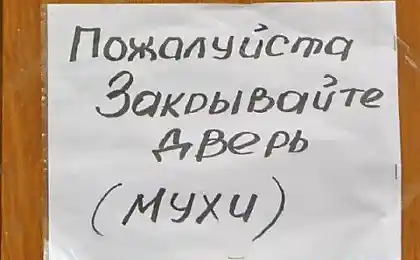 Пожалуйста
Закрывайте
дверь
(мухи)